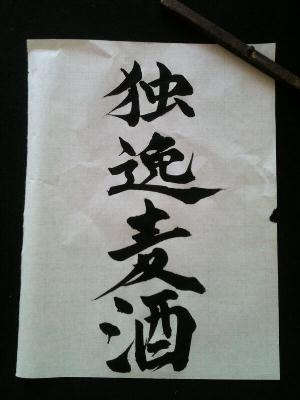 独逸麦酒